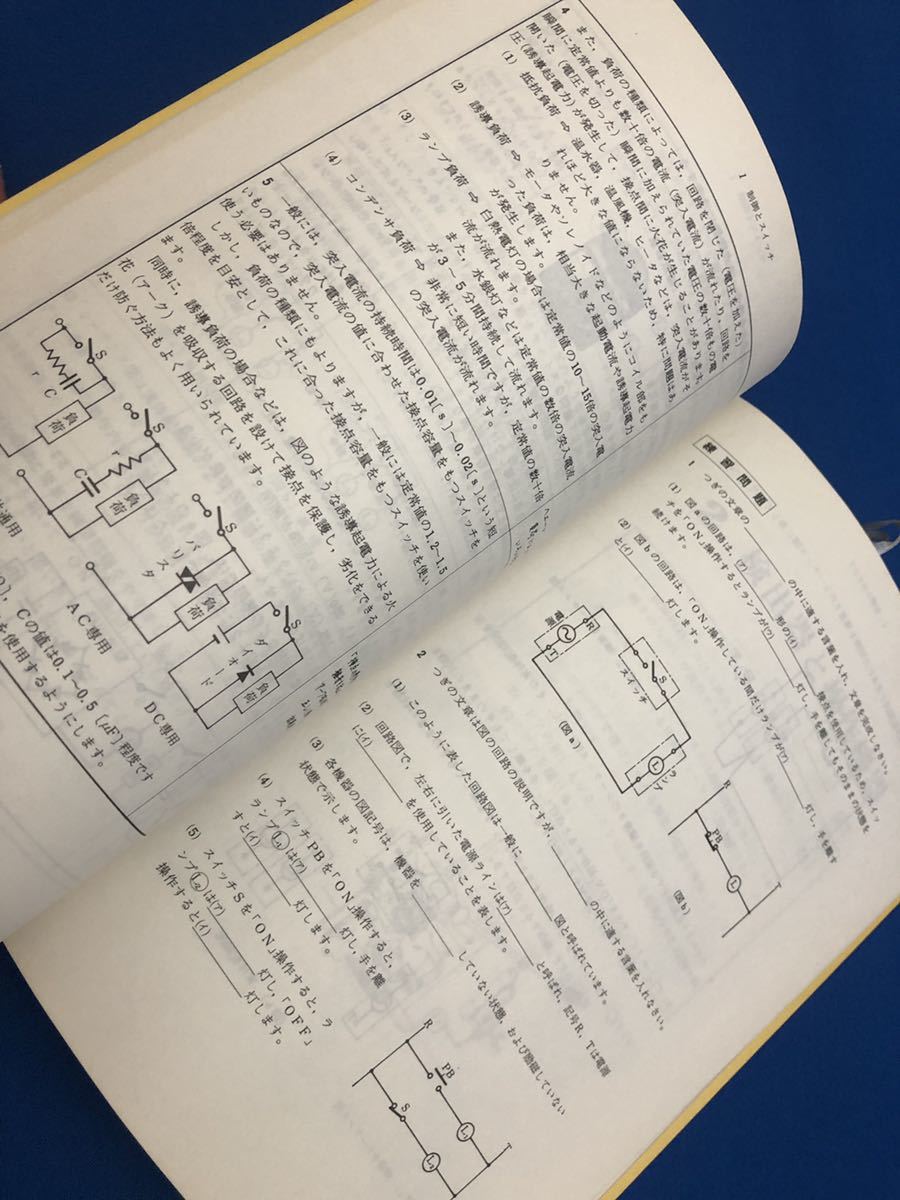 1 制御とスイッチ
また，負荷の種類によっては，回路を閉じた（電圧を加えた）
瞬間に定常値よりも数十倍の電流（突入電流）が流れたり，回路を
開いた（電圧を切った）瞬間に加えられていた電圧の数十倍もの電
圧（誘導起電力）が発生して，接点間に火花が生じることがあります。
4
(1) 抵抗負荷⇨温水器，温風機，ヒータなどは，突入電流がそ
れほど大きな値にならないため，特に問題はあ
りません。
(2) 誘導負荷⇨モータやソレノイドなどのようにコイル部をも
った負荷は，相当大きな起動電流や誘導起電力
が発生します。
(3) ランプ負荷⇨白熱電灯の場合は定常値の10～15倍の突入電
流が流れます。
また，水銀灯などは定常値の数倍の突入電流
が3～5分間持続して流れます。
(4) コンデンサ負荷⇨非常に短い時間ですが，定常値の数十倍
の突入電流が流れます。
5 一般には，突入電流の持続時間は0.01(s)～0.02(s)という短
いものなので，突入電流の値に合わせた接点容量をもつスイッチを
使う必要はありません。
しかし，負荷の種類にもよりますが，一般には定常値の1.2～1.5
倍程度を目安として，これに合った接点容量をもつスイッチを使い
ます。
同時に，誘導負荷の場合などは，図のような誘導起電力による火
花（アーク）を吸収する回路を設けて接点を保護し，劣化をできる
だけ防ぐ方法もよく用いられています。
S
r
C
負荷
S
r
C
負荷
S
バリスタ
負荷
S
ダイオード
負荷
共通用
AC専用
DC専用
，Cの値は0.1～0.5〔μF〕程度です
を使用するようにします。
練習問題
1 つぎの文章の　　　の中に適する言葉を入れ，文章を完成しなさい。
(1) 図aの回路は，(ア)　　　形の(イ)　　　接点を使用しているため，スイッ
チを「ON」操作するとランプが(ウ)　　　灯し，手を離してもそのままの状態を
続けます。
(2) 図bの回路は，「ON」操作している間だけランプが(ア)　　　灯し，手を離す
と(イ)　　　灯します。
電源
R
T
S
スイッチ
L
ランプ
（図a）
R
PB
L
T
（図b）
2 つぎの文章は図の回路の説明ですが，　　　の中に適する言葉を入れなさい。
(1) このように表した回路図は一般に　　　図と呼ばれています。
(2) 回路図で，左右に引いた電源ラインは(ア)　　　と呼ばれ，記号R，Tは電源
に(イ)　　　を使用していることを表します。
(3) 各機器の図記号は，機器を　　　していない状態，および励磁していない
状態で示します。
(4) スイッチPBを「ON」操作すると，
ランプL₁は(ア)　　　灯し，手を離
すと(イ)　　　灯します。
(5) スイッチSを「ON」操作すると，ラ
ンプL₂は(ア)　　　灯し，「OFF」
操作すると(イ)　　　灯します。
R
PB
L₁
T
S
L₂